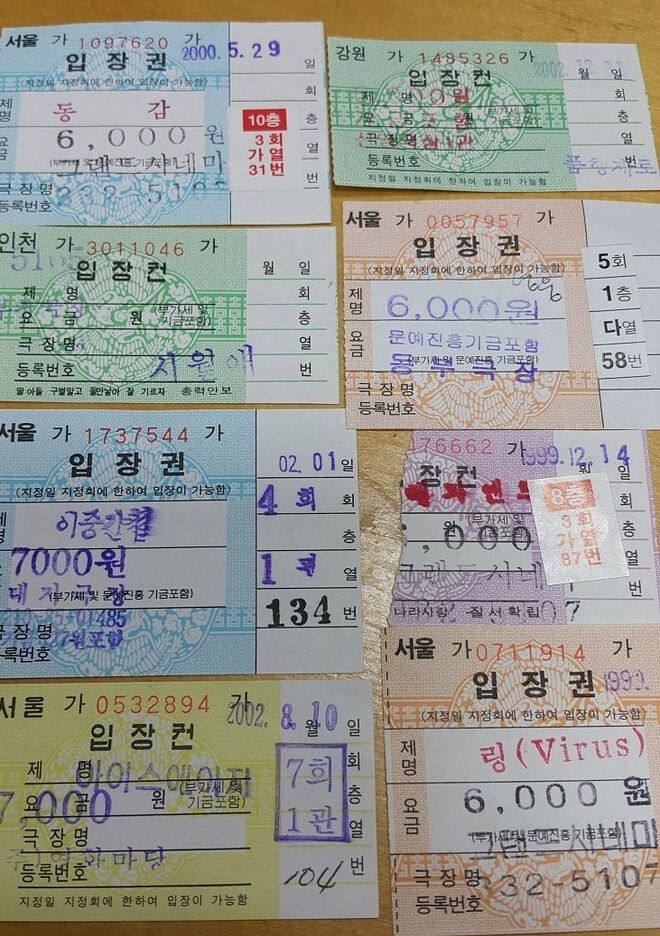 서울 가 1097620
입장권
2000.5.29 일
(지정일 지정회에 한하여 입장이 가능함)
제명 동감
요금 6,000원
(부가세 및 문예진흥기금포함)
그랜드시네마
극장명
등록번호
회
층
열
번
10층
3회
가열
31번
강원 가 1485326 가
입장권
월 일
제명
등록번호
지정일 지정회에 한하여 입장이 가능함
회
층
열
번
인천 가 3011046 가
입장권
월 일
제명
요금 원 (부가세 및 기금포함)
극장명
등록번호 시월애
딸 아들 구별말고 둘만낳아 잘 기르자 총력안보
회
층
열
번
서울 가 0057957 가
입장권
(지정일 지정회에 한하여 입장이 가능함)
제명
6,000원
요금
문예진흥기금포함
(부가세 및 문예진흥기금포함)
동부극장
극장명
등록번호
5회
1층
다열
58번
서울 가 1737544 가
입장권
02.01일
(지정일 지정회에 한하여 입장이 가능함)
제명 이중간첩
7000원
(부가세 및 문예진흥기금포함)
극장명
등록번호
4회
층
1 열
134 번
76662 가
1999.12.14
장권
(부가세 및 기금포함)
,000
그랜드시네
나라사랑 질서확립
8층
3회
가열
87번
서울 가 0532894 가
입장권
2002.8.10
월 일
제명 아이스에이지
요금 7,000 원 (부가세 및 기금포함)
극장명
영화마당
등록번호
지정일 지정회에 한하여 입장이 가능함
7회
1관
회
층
열
104 번
서울 가 0711914 가
입장권
1999.
(지정일 지정회에 한하여 입장이 가능함)
제명 링(Virus)
요금 6,000원
(부가세 및 문예진흥기금포함)
그랜드시네마
극장명 32-5107
등록번호